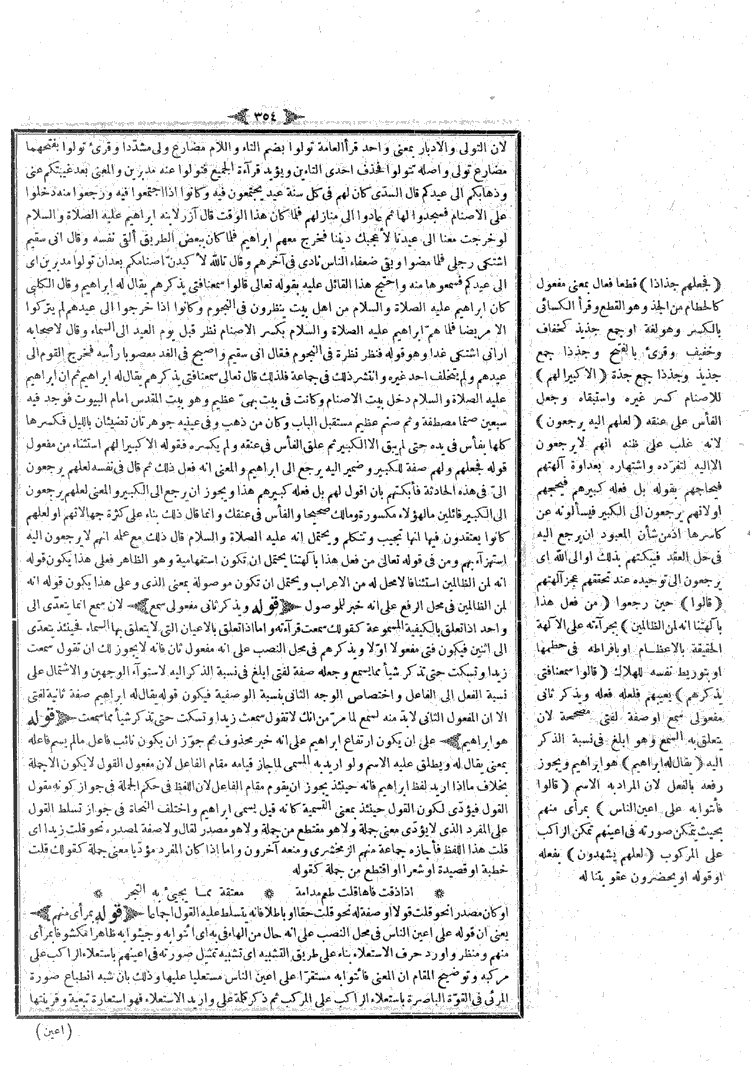 ٣٥٤
لان التولى والادبار بمعنى واحد قرأ العامة تولوا بضم التاء واللام مضارع ولى مشددا وقرئ تولوا بفتحهما
مضارع تولى واصله تتولوا فحذف احدى التاءين ويؤيد قراءة الجميع فتولوا عنه مدبرين والمعنى بعد غيبتكم عنى
وذهابكم الى عيدكم قال السدى كان لهم فى كل سنة عيد يجتمعون فيه وكانوا اذا اجتمعوا فيه ورجعوا منه دخلوا
على الاصنام فسجدوا لها ثم عادوا الى منازلهم فلما كان هذا الوقت قال آزر لابنه ابراهيم عليه الصلاة والسلام
لو خرجت معنا الى عيدنا لأعجبك ديننا فخرج معهم ابراهيم فلما كان ببعض الطريق ألقى نفسه وقال انى سقيم
اشتكى رجلى فلما مضوا وبقى ضعفاء الناس نادى فى آخرهم وقال تالله لأكيدن اصنامكم بعد ان تولوا مدبرين اى
الى عيدكم فسمعوها منه واحتج هذا القائل عليه بقوله تعالى قالوا سمعنا فتى يذكرهم يقال له ابراهيم وقال الكلبى
كان ابراهيم عليه الصلاة والسلام من اهل بيت ينظرون فى النجوم وكانوا اذا خرجوا الى عيدهم لم يتركوا
الا مريضا فلما هم ابراهيم عليه الصلاة والسلام بكسر الاصنام نظر قبل يوم العيد الى السماء وقال لاصحابه
ارانى اشتكى غدا وهو قوله فنظر نظرة فى النجوم فقال انى سقيم واصبح فى الغد معصوبا رأسه فخرج القوم الى
عيدهم ولم يتخلف احد غيره وانتشر ذلك فى جماعة فلذلك قال تعالى سمعنا فتى يذكرهم يقال له ابراهيم ثم ان ابراهيم
عليه الصلاة والسلام دخل بيت الاصنام وكانت فى بيت بهى عظيم وهو بيت المقدس امام البيوت فوجد فيه
سبعين صنما مصطفة وثم صنم عظيم مستقبل الباب وكان من ذهب وفى عينيه جوهرتان تضيئان بالليل فكسرها
كلها بفأس فى يده حتى لم يبق الا الكبير ثم علق الفأس فى عنقه ولم يكسره فقوله الا كبيرا لهم استثناء من مفعول
قوله فجعلهم ولهم صفة للكبير وضمير اليه يرجع الى ابراهيم والمعنى انه فعل ذلك ثم قال فى نفسه لعلهم يرجعون
الى فى هذه الحادثة فأبكتهم بان اقول لهم بل فعله كبيرهم هذا ويجوز ان يرجع الى الكبير والمعنى لعلهم يرجعون
الى الكبير قائلين ما لهؤلاء مكسورة ومالك صحيحا والفأس فى عنقك وانما قال ذلك بناء على كثرة جهالاتهم او لعلهم
كانوا يعتقدون فيها انها تجيب وتتكلم ويحتمل انه عليه الصلاة والسلام قال ذلك مع علمه انهم لا يرجعون اليه
استهزاء بهم ومن فى قوله تعالى من فعل هذا بآلهتنا يحتمل ان تكون استفهامية وهو الظاهر فعلى هذا يكون قوله
انه لمن الظالمين استئنافا لا محل له من الاعراب ويحتمل ان تكون موصولة بمعنى الذى وعلى هذا يكون قوله انه
لمن الظالمين فى محل الرفع على انه خبر للموصول ﴿قوله ويذكر ثانى مفعولى سمع﴾ لان سمع انما يتعدى الى
واحد اذا تعلق بالكيفية المسموعة كقولك سمعت قراءته واما اذا تعلق بالاعيان التى لا يتعلق بها السماء فحينئذ يتعدى
الى اثنين فيكون فتى مفعولا اولا ويذكرهم فى محل النصب على انه مفعول ثان فانه لا يجوز لك ان تقول سمعت
زيدا وتسكت حتى تذكر شيأ مما يسمع وجعله صفة لفتى ابلغ فى نسبة الذكر اليه لاستواء الوجهين والاشتمال على
نسبة الفعل الى الفاعل واختصاص الوجه الثانى بنسبة الوصفية فيكون قوله يقال له ابراهيم صفة ثانية لفتى
الا ان المفعول الثانى لابد منه لسمع لما مر من انك لا تقول سمعت زيدا وتسكت حتى تذكر شيأ مما سمعت ﴿قوله
هو ابراهيم﴾ على ان يكون ارتفاع ابراهيم على انه خبر محذوف ثم جوز ان يكون نائب فاعل ما لم يسم فاعله
بمعنى يقال له ويطلق عليه الاسم ولو اريد به المسمى لما جاز قيامه مقام الفاعل لان مفعول القول لا يكون الا جملة
بخلاف ما اذا اريد لفظ ابراهيم فانه حينئذ يجوز ان يقوم مقام الفاعل لان اللفظ فى حكم الجملة فى جواز كونه مقول
القول فيؤدى لكون القول حينئذ بمعنى التسمية كانه قيل يسمى ابراهيم واختلف النحاة فى جواز تسلط القول
على المفرد الذى لا يؤدى معنى جملة ولا هو مقتطع من جملة ولا هو مصدر لقال ولا صفة لمصدره نحو قلت زيدا اى
قلت هذا اللفظ فأجازه جماعة منهم الزمخشرى ومنعه آخرون واما اذا كان المفرد مؤديا معنى جملة كقولك قلت
خطبة او قصيدة او شعرا او اقتطع من جملة كقوله
اذا ذقت فاها قلت طعم مدامة * معتقة بما يجيئ به التجر
او كان مصدرا نحو قلت قولا او صفة له نحو قلت حقا او باطلا فانه يتسلط عليه القول اجماعا ﴿قوله بمرأى منهم﴾
يعنى ان قوله على اعين الناس فى محل النصب على انه حال من الهاء فى به اى ائتوا به وجيئوا به ظاهرا مكشوفا بمرأى
منهم ومنظر واورد حرف الاستعلاء بناء على طريق التشبيه اى تشبيه تمثيل صورته فى اعينهم باستعلاء الراكب على
مركبه وتوضيح المقام ان المعنى فأتوا به مستقرا على اعين الناس مستعليا عليها وذلك بان شبه انطباع صورة
المرئى فى القوة الباصرة باستعلاء الراكب على المركب ثم ذكر كلمة على واريد الاستعلاء فهو استعارة تبعية وقرينتها
(اعين)
(فجعلهم جذاذا) قطعا فعال بمعنى مفعول
كالحطام من الجذ وهو القطع وقرأ الكسائى
بالكسر وهو لغة او جمع جذيذ كخفاف
وخفيف وقرئ بالفتح وجذذا جمع
جذيذ وجذذا جمع جذة (الا كبيرا لهم)
للاصنام كسر غيره واستبقاه وجعل
الفأس على عنقه (لعلهم اليه يرجعون)
لانه غلب على ظنه انهم لا يرجعون
الا اليه لتفرده واشتهاره بعداوة آلهتهم
فيحاجهم بقوله بل فعله كبيرهم فيحجهم
او لانهم يرجعون الى الكبير فيسألونه عن
كاسرها اذ من شأن المعبود ان يرجع اليه
فى حل العقد فيبكتهم بذلك او الى الله اى
يرجعون الى توحيده عند تحققهم عجز آلهتهم
(قالوا) حين رجعوا (من فعل هذا
بآلهتنا انه لمن الظالمين) بجرآءته على الآلهة
الحقيقة بالاعظام او بافراطه فى حطمها
او بتوريط نفسه للهلاك (قالوا سمعنا فتى
يذكرهم) يعيبهم فلعله فعله ويذكر ثانى
مفعولى سمع او صفة لفتى مصححة لان
يتعلق به السمع وهو ابلغ فى نسبة الذكر
اليه (يقال له ابراهيم) هو ابراهيم ويجوز
رفعه بالفعل لان المراد به الاسم (قالوا
فأتوا به على اعين الناس) بمرأى منهم
بحيث يتمكن صورته فى اعينهم تمكن الراكب
على المركوب (لعلهم يشهدون) بفعله
او قوله او يحضرون عقوبتنا له